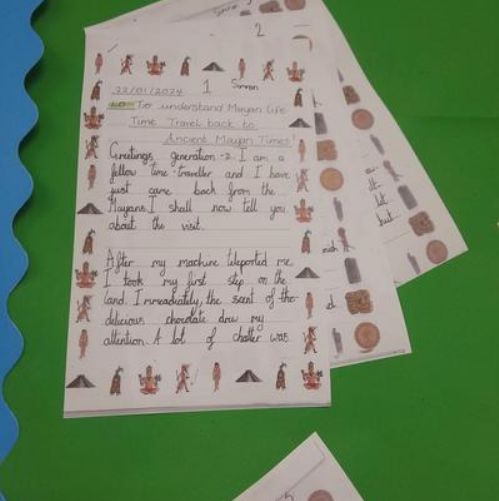 2
1
22/01/2024
LO: To understand Mayan life
Time Travel back to
Ancient Mayan Times
Greetings generation -2. I am a
fellow time-traveller and I have
just came back from the
Mayans. I shall now tell you
about the visit.
After my machine teleported me
I took my first step on the
land. Immediately, the scent of the
delicious chocolate drew my
attention. A lot of chatter was
5